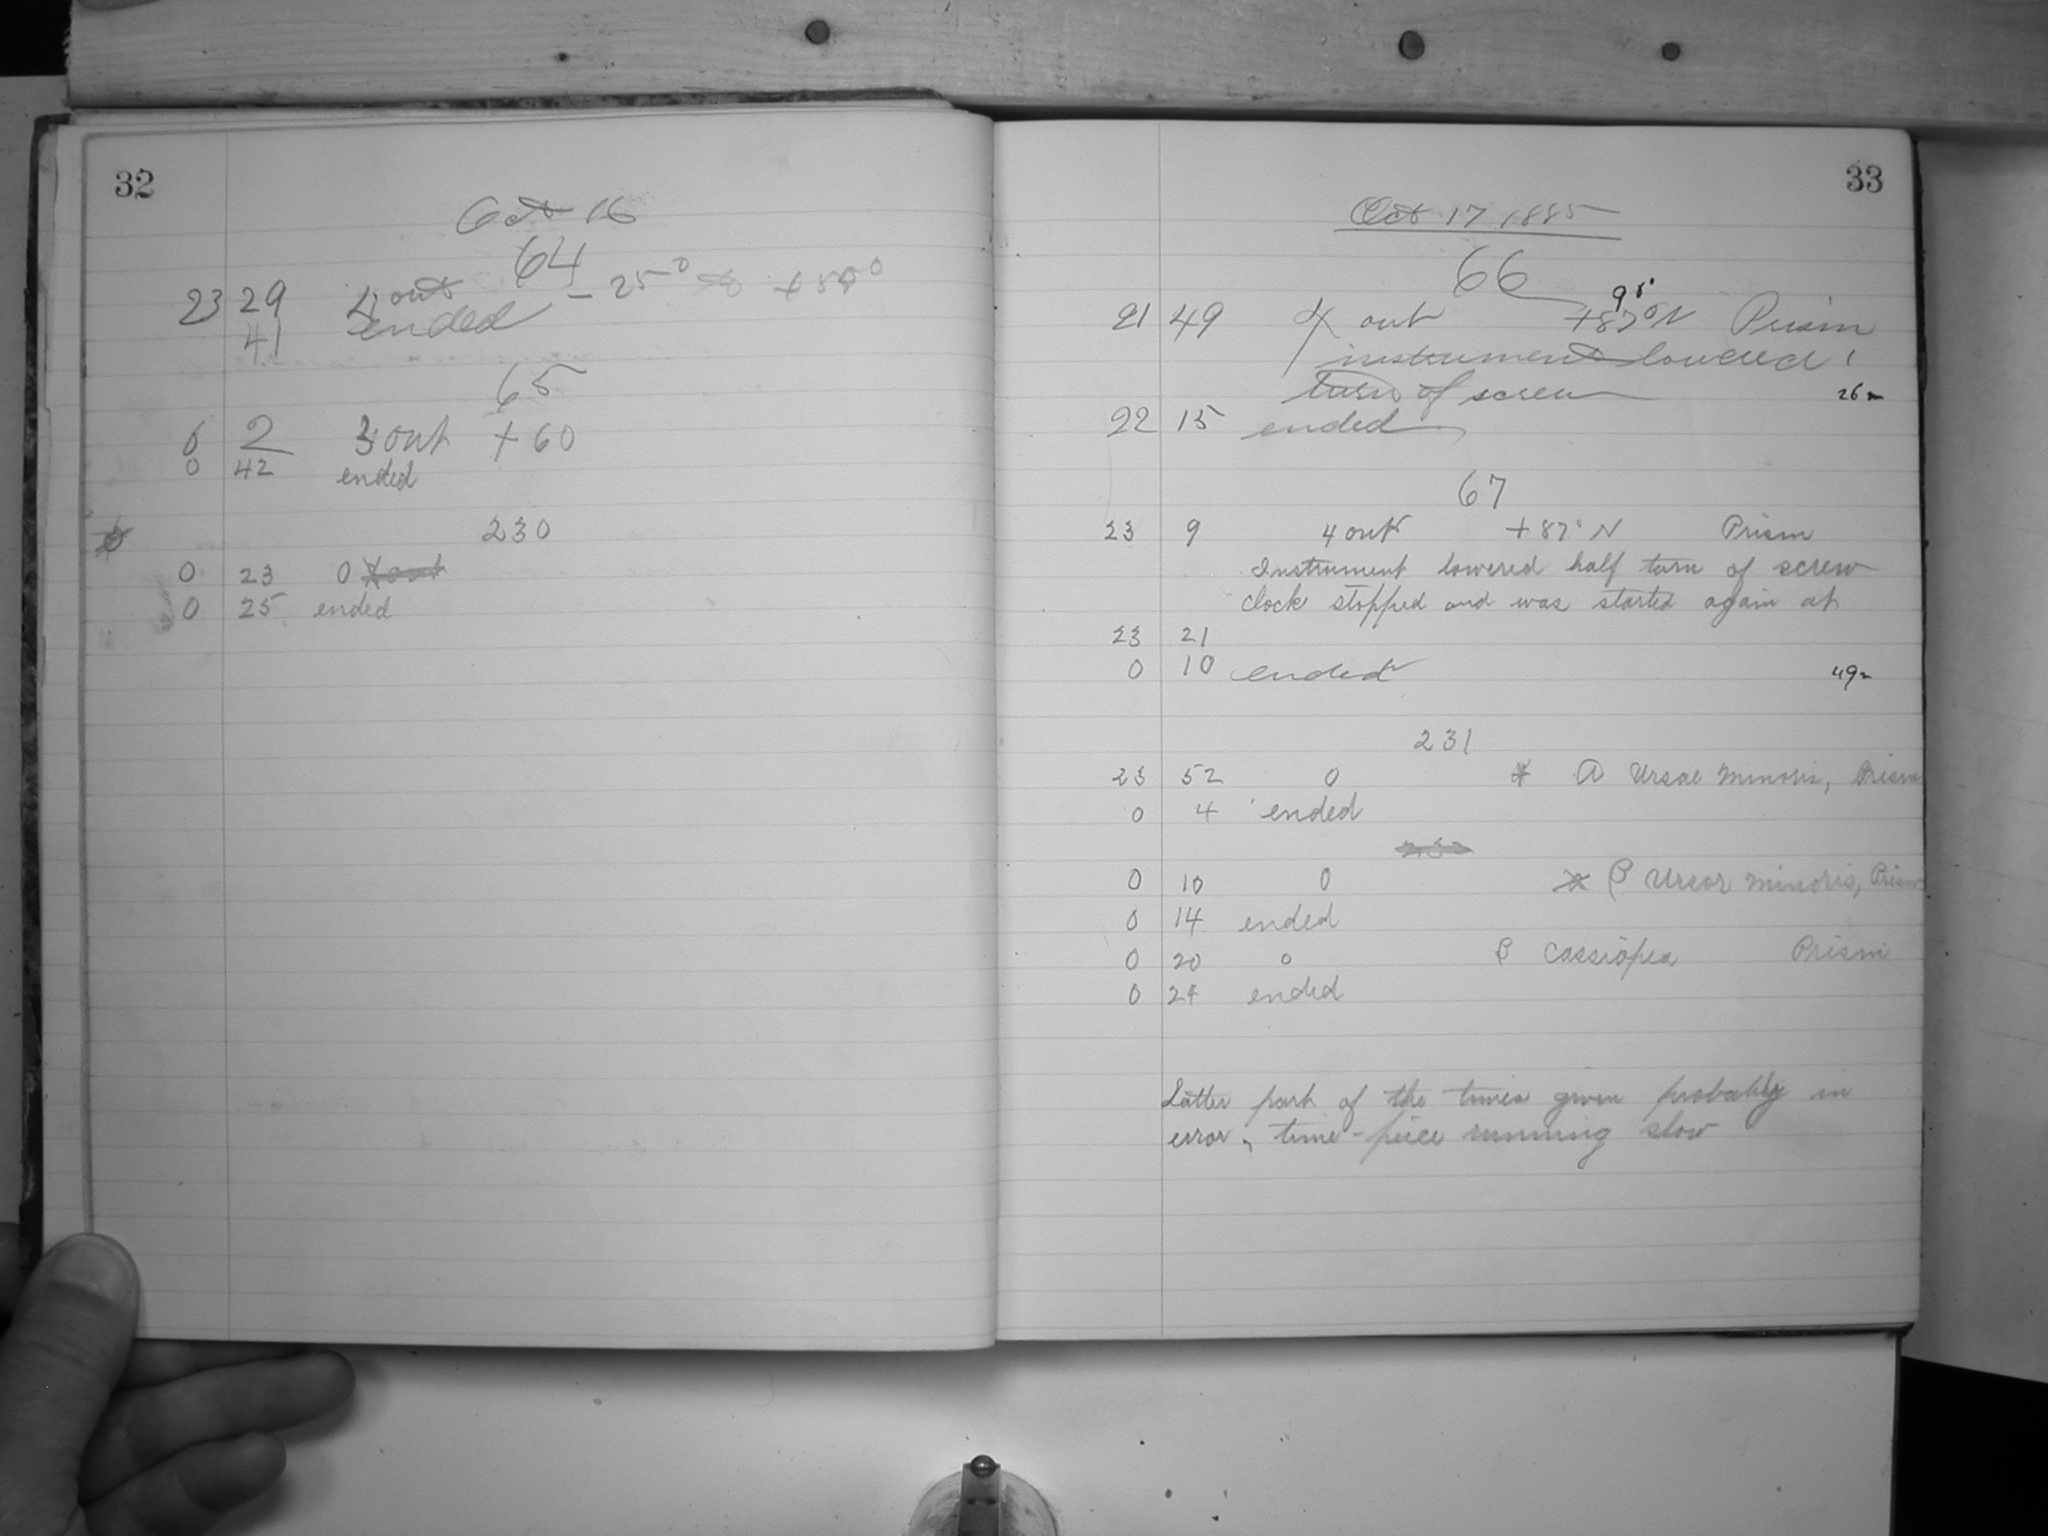 32
Oct 16
64
23 29 4 out - 25° to +50°
41 ended
65
0 2 3 out + 60
0 42 ended
230
0 23 0
0 25 ended
33
Oct 17 1885
66
21 49 4 out +87° N Prism
instrument lowered 1
turn of screw 26m
22 15 ended
67
23 9 4 out +87° N Prism
Instrument lowered half turn of screw
clock stopped and was started again at
23 21
0 10 ended 49m
231
23 52 0 * α Ursae Minoris, Prism
0 4 ended
232
0 10 0 β Ursae Minoris, Prism
0 14 ended
0 20 0 β Cassiopea Prism
0 24 ended
Latter part of the times given probably in
error, time-piece running slow